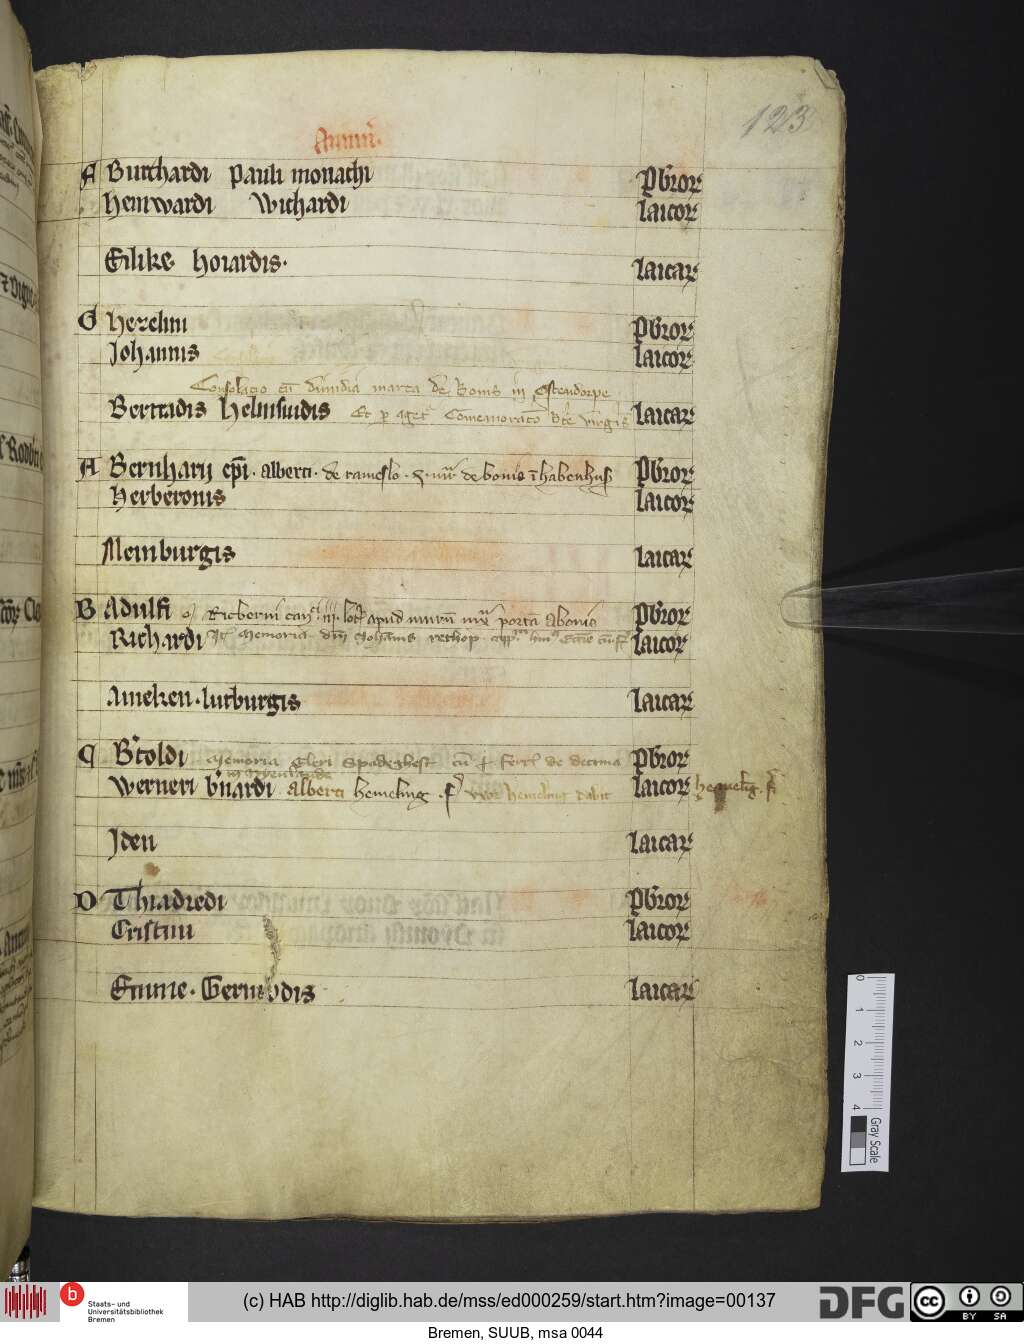 123
A Burchardi Pauli monachi pb'ror
Heinwardi Wichardi laicor
Eilike hoiardis. laicar
G Hezelini pb'ror
Johannis laicor
Consolacio dimidia marca de bonis in Ostendorpe
Bertradis Helmsuidis Et laicar
A Bernharii ep̄i. alberti. de rameslo. de bonis ī habenhuſ pb'ror
Herberonis laicor
Meinburgis laicar
B Adulfi apud portā abonis pb'ror
Richardi memoria laicor
Ameken. lutburgis laicar
C B'toldi memoria de decima pb'ror
Werneri b'nardi alberti hemeling laicor
Iden laicar
D Thiadredi pb'ror
Cristini laicor
Emme. Germodis laicar
0 1 2 3 4
Gray Scale
b Staats- und
Universitätsbibliothek
Bremen
(c) HAB http://diglib.hab.de/mss/ed000259/start.htm?image=00137
DFG
cc BY SA
Bremen, SUUB, msa 0044